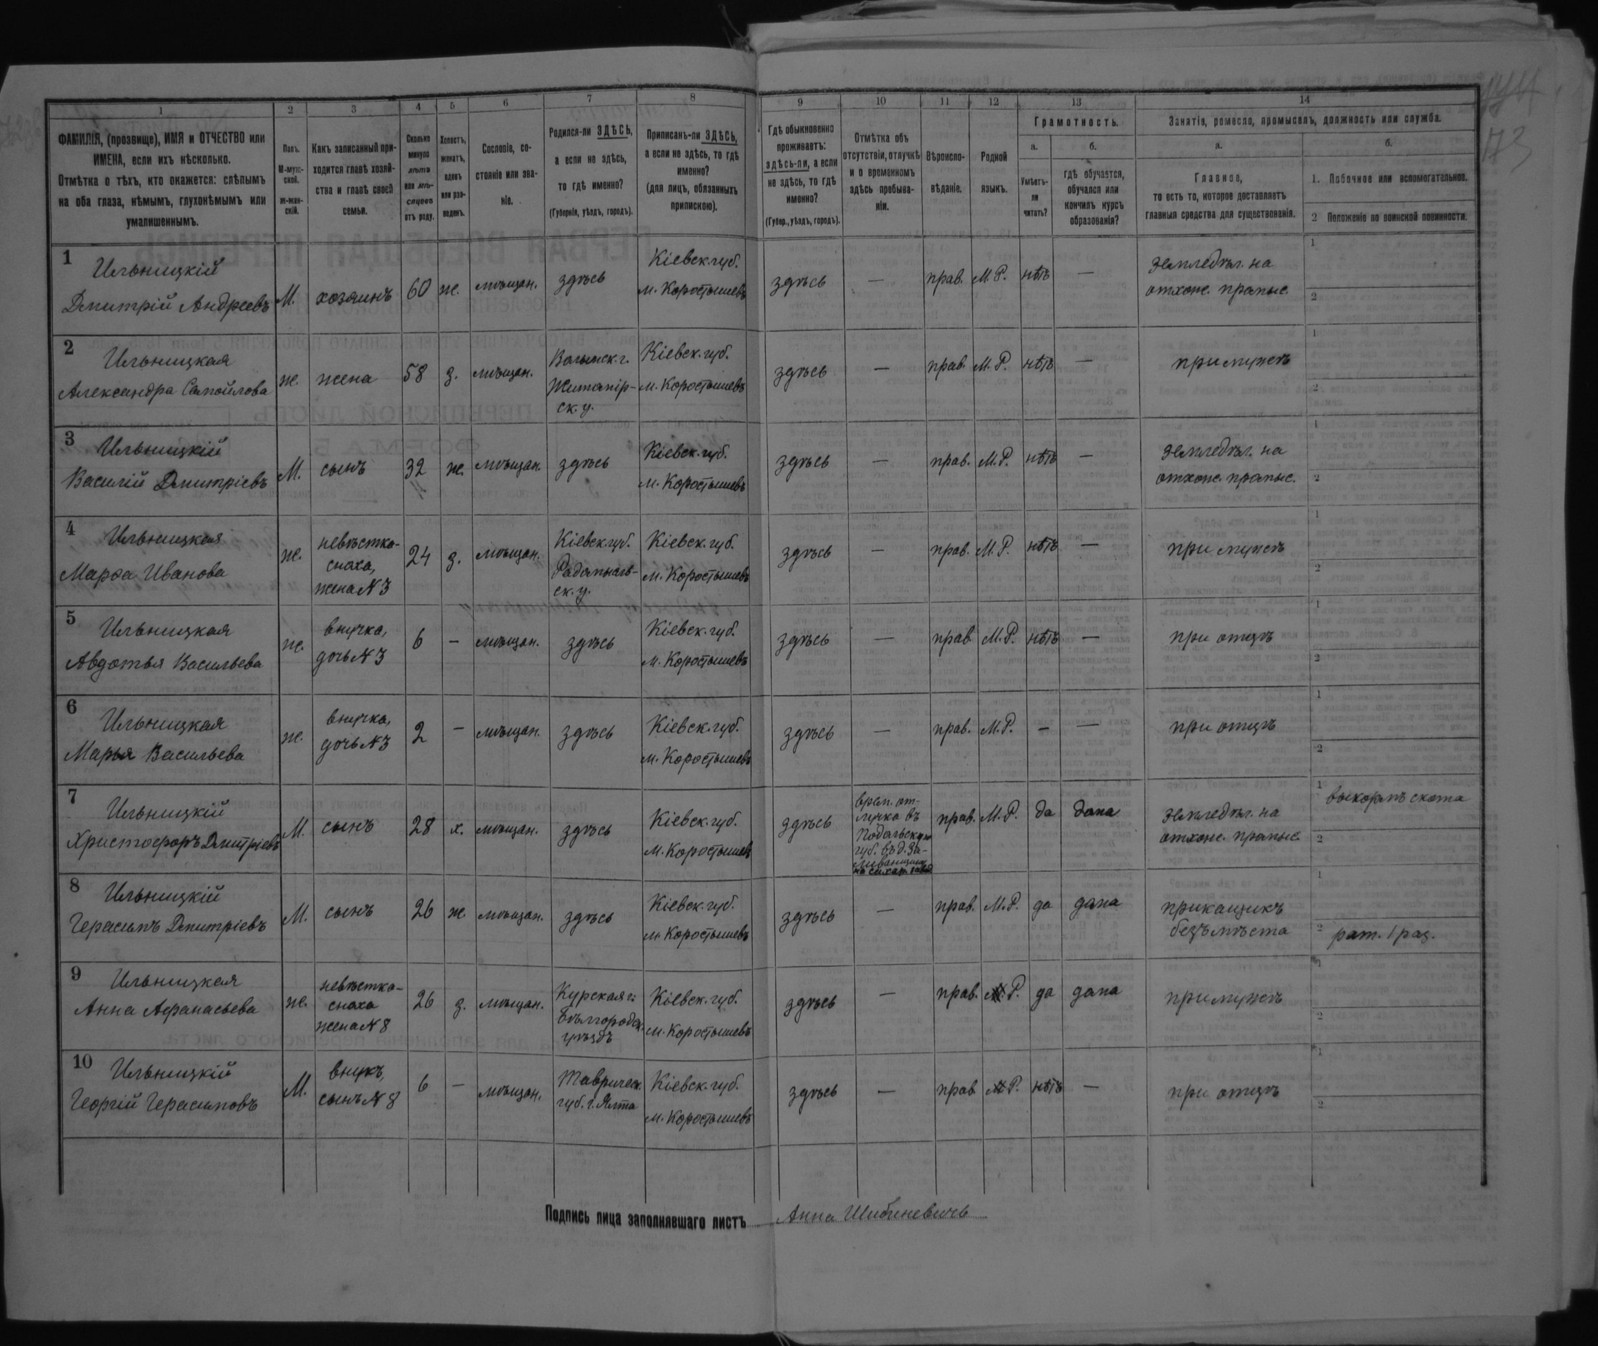 1 2 3 4 5 6 7 8 9 10 11 12 13 14
ФАМИЛІЯ, (прозвище), ИМЯ и ОТЧЕСТВО или
ИМЕНА, если ихъ нѣсколько.
Отмѣтка о тѣхъ, кто окажется: слѣпымъ
на оба глаза, нѣмымъ, глухонѣмымъ или
умалишеннымъ.
Полъ.
М-муж-
ской.
ж-жен-
скій.
Какъ записанный при-
ходится главѣ хозяй-
ства и главѣ своей
семьи.
Сколько
минуло
лѣтъ
или мѣ-
сяцевъ
отъ роду.
Холостъ,
женатъ,
вдовъ
или раз-
веденъ.
Сословіе, со-
стояніе или зва-
ніе.
Родился-ли ЗДѢСЬ,
а если не здѣсь,
то гдѣ именно?
(Губернія, уѣздъ, городъ).
Приписанъ-ли ЗДѢСЬ,
а если не здѣсь, то гдѣ
именно?
(для лицъ, обязанныхъ
припискою).
Гдѣ обыкновенно
проживаетъ:
здѣсь-ли, а если
не здѣсь, то гдѣ
именно?
(Губер., уѣздъ, городъ).
Отмѣтка объ
отсутствіи, отлучкѣ
и о временномъ
здѣсь пребыва-
ніи.
Вѣроиспо-
вѣданіе.
Родной
языкъ.
Грамотность.
а.
Умѣетъ-
ли
читать?
б.
гдѣ обучается,
обучался или
кончилъ курсъ
образованія?
Занятіе, ремесло, промыселъ, должность или служба.
а.
Главное,
то есть то, которое доставляетъ
главныя средства для существованія.
б.
1. Побочное или вспомогательное.
2 Положеніе по воинской повинности.
1
Ильницкій
Дмитрій Андреевъ
М.
хозяинъ
60
ж.
мѣщан.
здѣсь
Кіевск. губ.
м. Коростышевъ
здѣсь
—
прав.
М. Р.
нѣтъ
—
земледѣл. на
отхож. промыс.
1
2
2
Ильницкая
Александра Самойлова
ж.
жена
58
з.
мѣщан.
Волынск. г.
Житомір-
ск. у.
Кіевск. губ.
м. Коростышевъ
здѣсь
—
прав.
М. Р.
нѣтъ
—
при мужѣ
1
2
3
Ильницкій
Василій Дмитріевъ
М.
сынъ
32
ж.
мѣщан.
здѣсь
Кіевск. губ.
м. Коростышевъ
здѣсь
—
прав.
М. Р.
нѣтъ
—
земледѣл. на
отхож. промыс.
1
2
4
Ильницкая
Марѳа Иванова
ж.
невѣстка-
сноха,
жена № 3
24
з.
мѣщан.
Кіевск. губ.
Радомысль-
ск. у.
Кіевск. губ.
м. Коростышевъ
здѣсь
—
прав.
М. Р.
нѣтъ
—
при мужѣ
1
2
5
Ильницкая
Авдотья Васильева
ж.
внучка,
дочь № 3
6
—
мѣщан.
здѣсь
Кіевск. губ.
м. Коростышевъ
здѣсь
—
прав
М. Р.
нѣтъ
—
при отцѣ
1
2
6
Ильницкая
Марья Васильева
ж.
внучка,
дочь № 3
2
—
мѣщан.
здѣсь
Кіевск. губ.
м. Коростышевъ
здѣсь
—
прав.
М. Р.
—
—
при отцѣ
1
2
7
Ильницкій
Христофоръ Дмитріевъ
М.
сынъ
28
х.
мѣщан.
здѣсь
Кіевск. губ.
м. Коростышевъ
здѣсь
врем. от-
лучка въ
Подольскую
губ. въ д. За-
прав.
М. Р.
да
дома
земледѣл. на
отхож. промыс.
1
выкормъ скота
2
8
Ильницкій
Герасимъ Дмитріевъ
М.
сынъ
26
ж.
мѣщан.
здѣсь
Кіевск. губ.
м. Коростышевъ
здѣсь
—
прав.
М. Р.
да
дома
прикащикъ
безъ мѣста
1
2
рат. 1 раз.
9
Ильницкая
Анна Афанасьева
ж.
невѣстка-
сноха
жена № 8
26
з.
мѣщан.
Курская г.
Бѣлгородск.
уѣздъ
Кіевск. губ.
м. Коростышевъ
здѣсь
—
прав.
Р.
да
дома
при мужѣ
1
2
10
Ильницкій
Георгій Герасимовъ
М.
внукъ,
сынъ № 8
6
—
мѣщан.
Тавричес.
губ. г. Ялта
Кіевск. губ.
м. Коростышевъ
здѣсь
—
прав
Р.
нѣтъ
—
при отцѣ
1
2
Подпись лица заполнявшаго листъ Анна Шибиневичъ